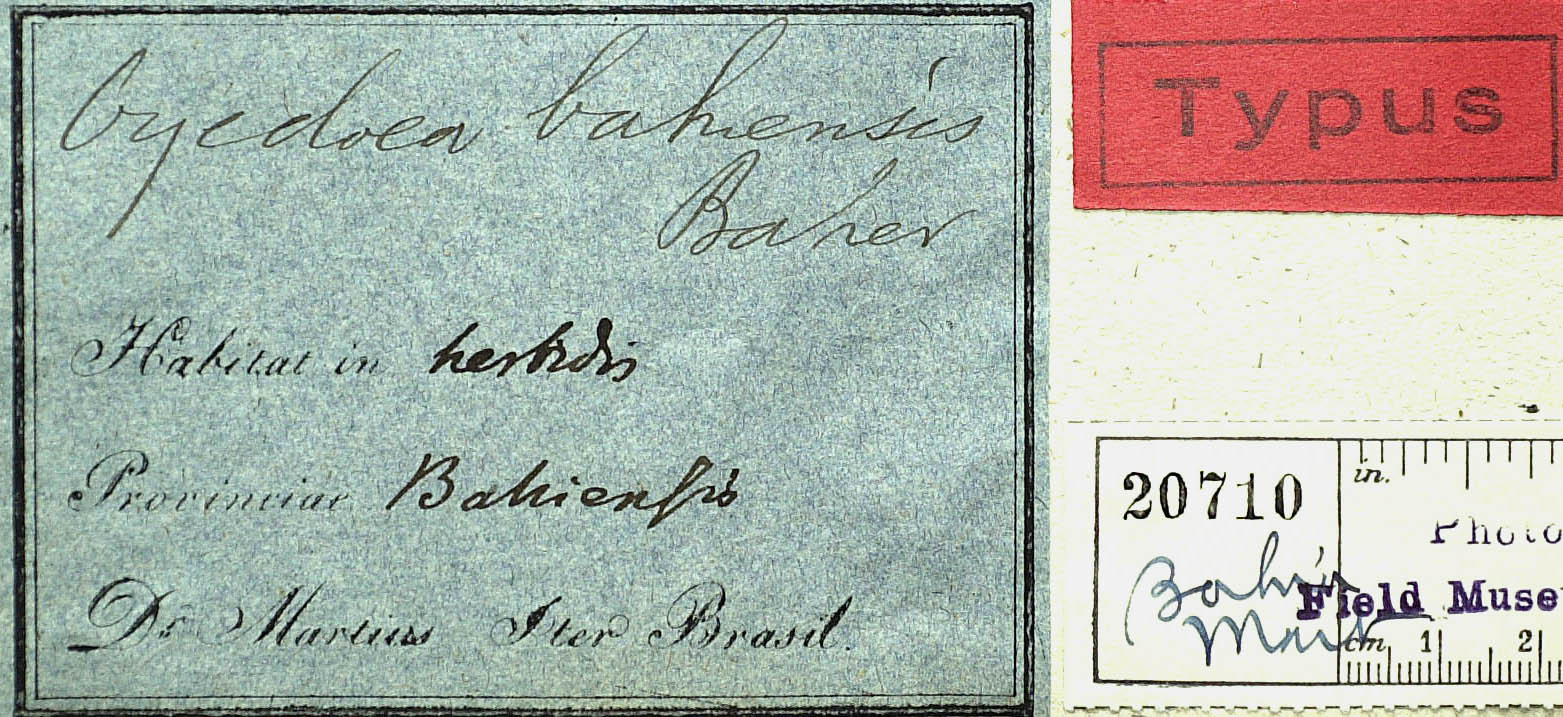 Oyedaea bahiensis
Baker
Habitat in herbidis
Provinciae Bahiensis
Dr. Martius Iter Brasil.
Typus
20710
in.
Photo
Bahia
Field Muse
Mart
cm 1 2